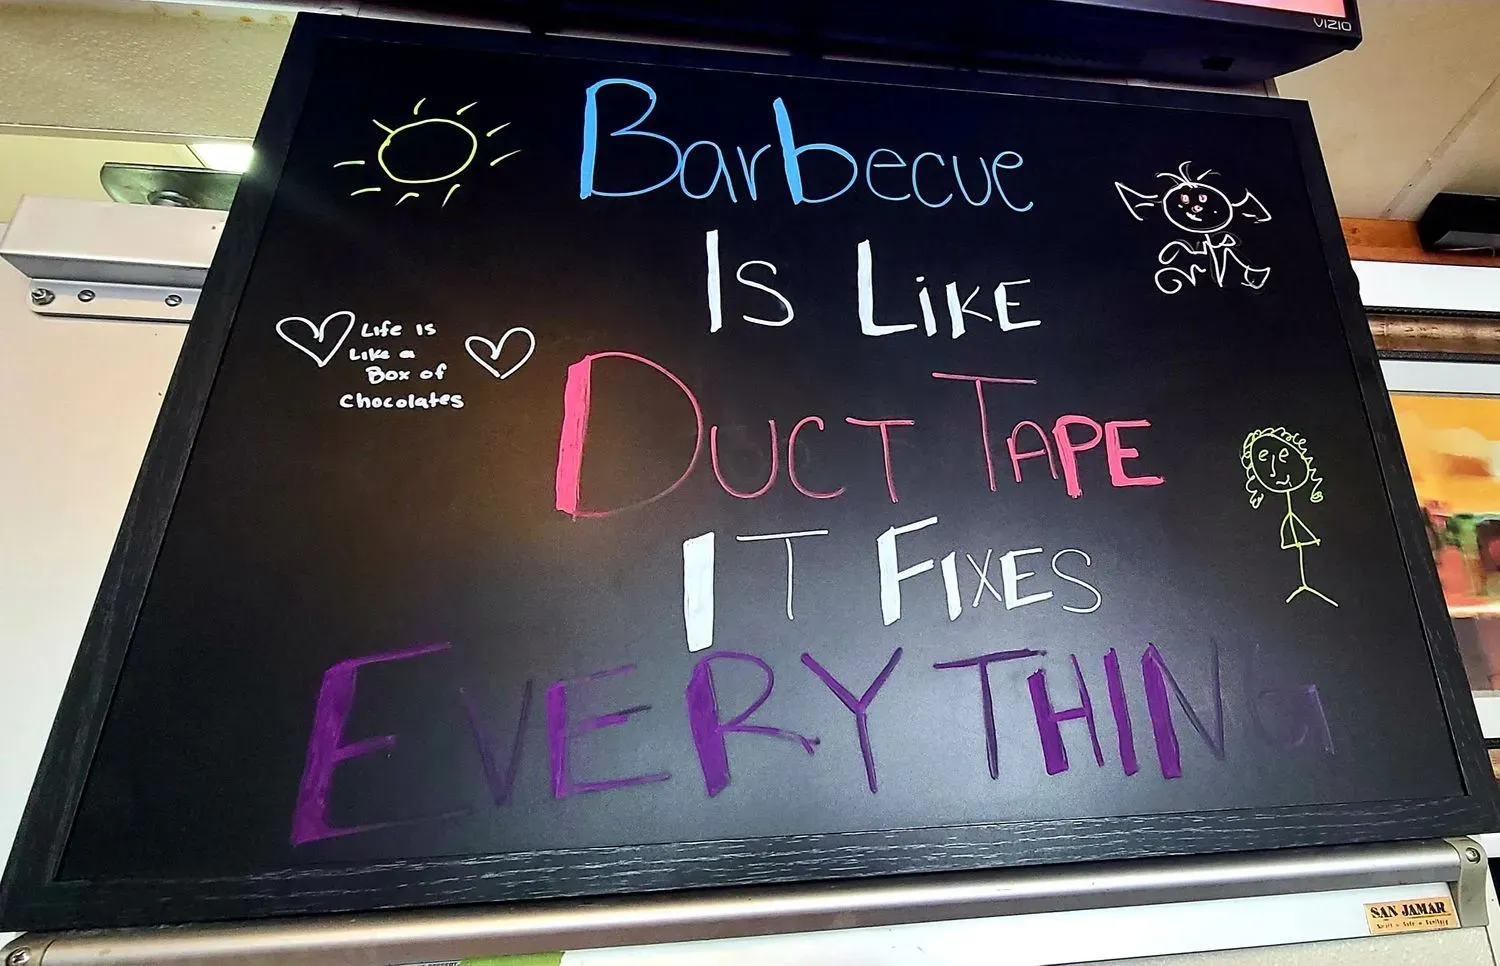 VIZIO
Barbecue
Is Like
Life is
Like a
Box of
Chocolates
Duct Tape
It Fixes
Everything
SAN JAMAR